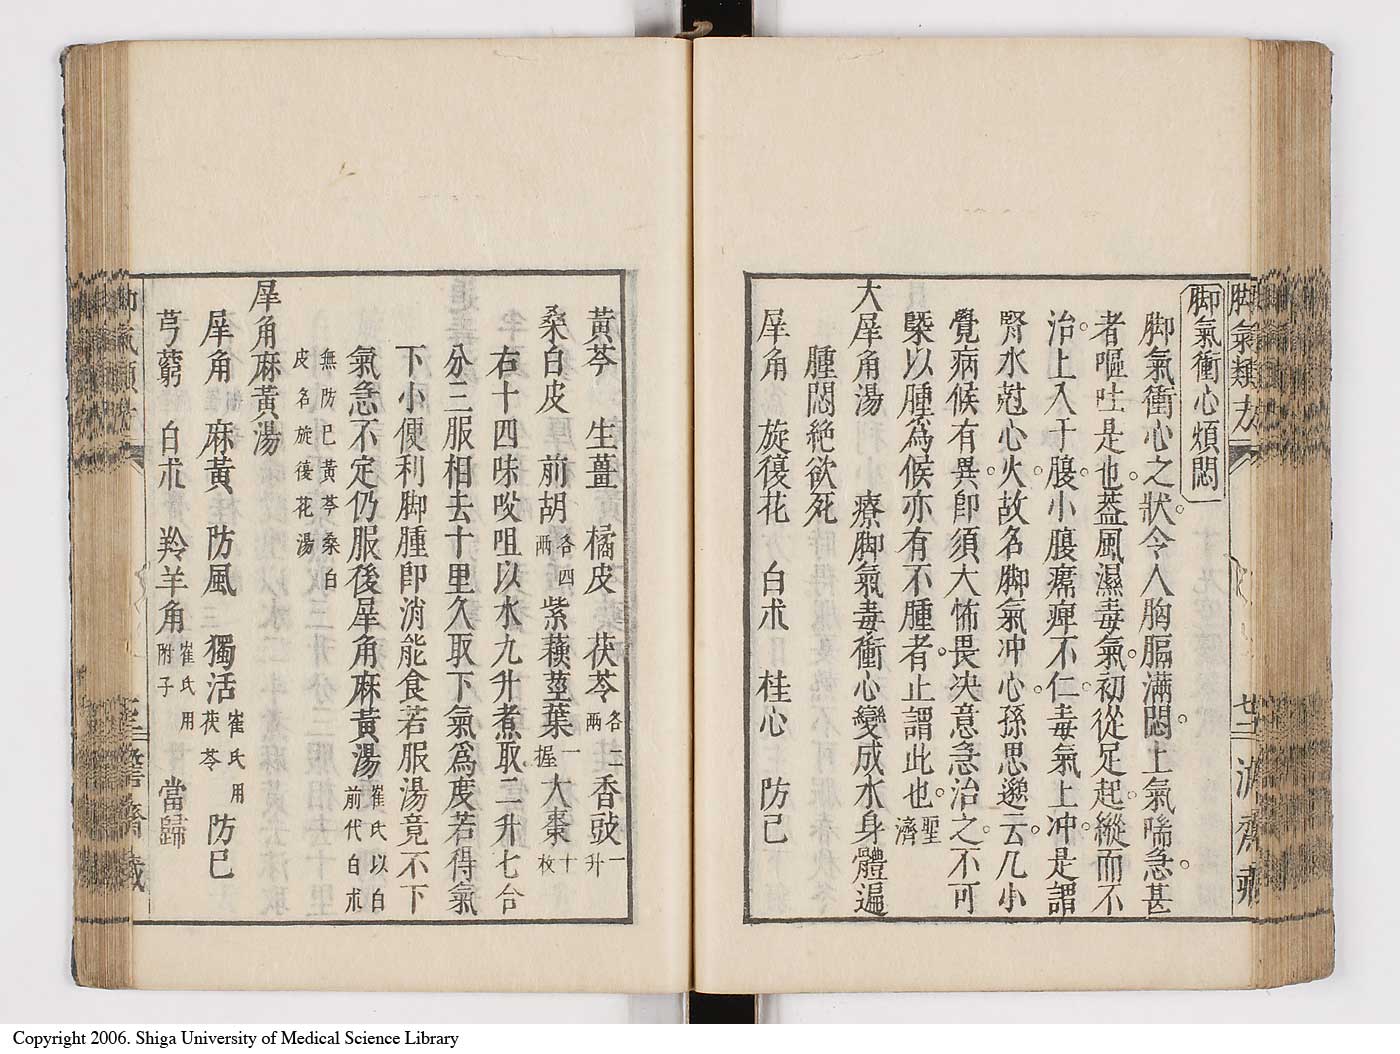 脚氣類方
脚氣衝心煩悶
脚氣衝心之狀令人胸膈滿悶上氣喘急甚
者嘔吐是也蓋風濕毒氣初從足起縱而不
治上入于腹小腹痛痺不仁毒氣上冲是謂
腎水尅心火故名脚氣冲心孫思邈云凡小
覺病候有異即須大怖畏决意急治之不可
槩以腫為候亦有不腫者止謂此也聖濟
大犀角湯 療脚氣毒衝心變成水身體遍
腫悶絶欲死
犀角 旋復花 白朮 桂心 防己
黃芩 生薑 橘皮 茯苓各二兩 香豉一升
桑白皮 前胡各四兩 紫蘇莖葉一握 大棗十枚
右十四味㕮咀以水九升煮取二升七合
分三服相去十里久取下氣爲度若得氣
下小便利脚腫即消能食若服湯竟不下
氣急不定仍服後犀角麻黃湯崔氏以白前代白朮
無防己黃芩桑白皮名旋復花湯
犀角麻黃湯
犀角 麻黃 防風 獨活崔氏用茯苓 防巳
芎藭 白朮 羚羊角崔氏用附子 當歸